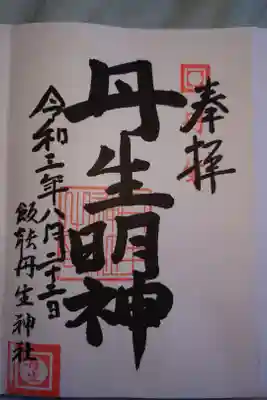 奉拝
丹生明神
令和三年八月二十二日
飯能丹生神社